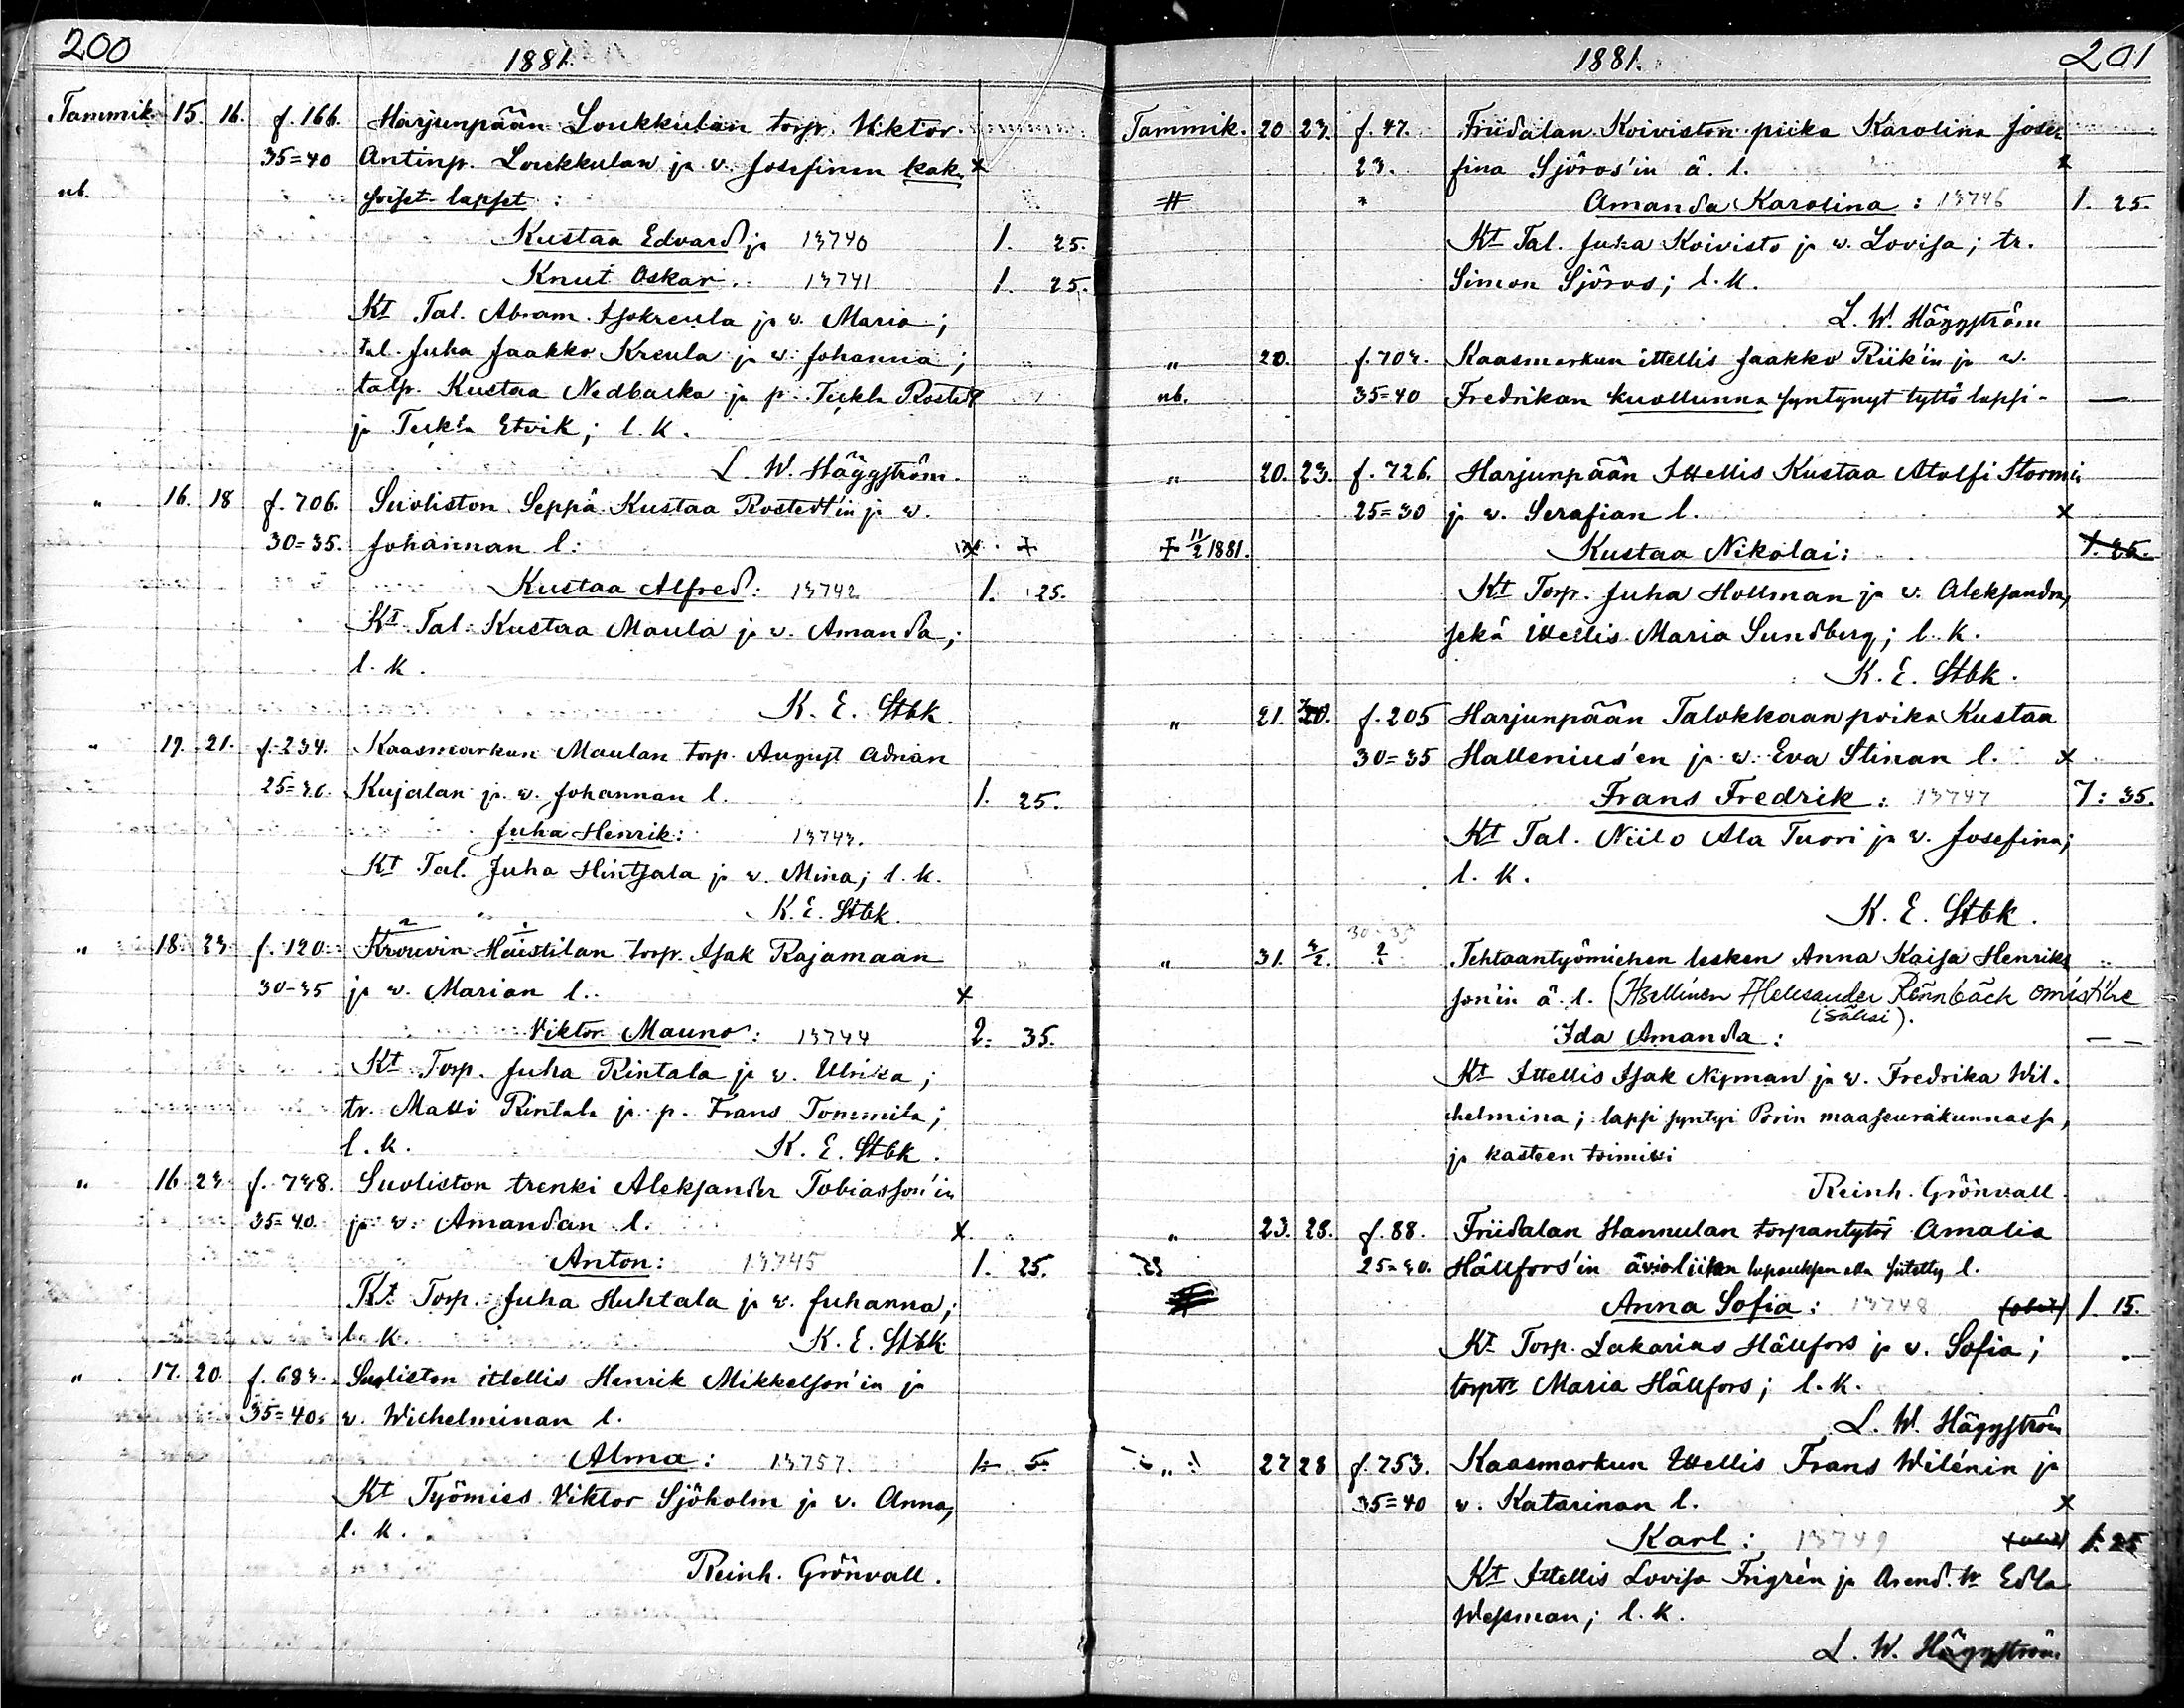 200
1881.
Tammik. 15. 16. f. 166. Harjunpään Loukkulan torp. Viktor
35=40 Antinp. Loukkulan ja v. Josefinan kak x
nb. soiset lapset :
Kustaa Edvard ja 13740 1. 25.
Knut Oskar. 13741 1. 25.
Kt Tal. Abram Isokreula ja v. Maria;
tal. Juha Jaakko Kreula ja v. Johanna;
talp. Kustaa Nedbacka ja p. Tekla Rostedt
ja Tekla Etvik; l. k.
L. W. Häggström.
" 16. 18 f. 706. Suoliston Seppä Kustaa Rostedt'in ja v.
30=35. Johannan l:
Kustaa Alfred: 13742 1. 25.
Kt Tal. Kustaa Maula ja v. Amanda;
l. k.
K. E. Stbk.
" 19. 21. f. 234. Kaasmarkun Maulan torp. August Adrian
25=30. Kujalan ja v. Johannan l. 1. 25.
Juha Henrik: 13743.
Kt Tal. Juha Hintsala ja v. Mina; l. k.
K. E. Stbk.
" 18. 23 f. 120. Krouvin Haistilan torp. Isak Rajamaan
30-35 ja v. Marian l. x
Viktor Mauno: 13744 2. 35.
Kt Torp. Juha Rintala ja v. Ulrika;
tr. Matti Rintala ja p. Frans Tommila;
l. k. K. E. Stbk.
" 16. 23 f. 738. Suoliston trenki Aleksander Tobiasson'in
35=40. ja v. Amandan l. x
Anton: 13745 1. 25.
Kt Torp. Juha Huhtala ja v. Juhanna;
l. k. K. E. Stbk.
" 17. 20. f. 683. Suoliston itellis Henrik Mikkelson'in ja
35=40. v. Wilhelminan l.
Alma: 13757.
Kt Työmies Viktor Sjöholm ja v. Anna,
l. k.
Reinh. Grönvall.
1881. 201
Tammik. 20 23. f. 47. Friidalan Koiviston piika Karolina Jose
23. fina Sjöros'in ä. l. x
Amanda Karolina : 13746 1. 25.
Kt Tal. Juha Koivisto ja v. Lovisa; tr.
Simon Sjöros; l. k.
L. W. Häggström
" 20. f. 704. Kaasmarkun ittellis Jaakko Riik'in ja v.
nb. 35=40 Fredrikan kuollunna syntynyt tyttö lapsi -
" 20. 23. f. 726. Harjunpään Ittellis Kustaa Atolfi Stormin
25=30 ja v. Serafian l. x
+ 11/2 1881. Kustaa Nikolai: 1. 25.
Kt Torp. Juha Hollman ja v. Aleksandra,
sekä ittellis Maria Sundberg; l. k.
K. E. Stbk.
" 21. f. 205 Harjunpään Talokkaanpoika Kustaa
30=35 Hallenius'en ja v. Eva Stinan l. x
Frans Fredrik: 13747 7: 35.
Kt Tal. Niilo Ala Tuori ja v. Josefina;
l. k.
K. E. Stbk.
30-35
" 31. 4/2. ? Tehtaantyömiehen lesken Anna Kaisa Henriks
son'in ä. l. (Itsellinen Aleksander Rönnbäck omisti he
isäksi).
Ida Amanda : — —
Kt Ittellis Isak Nyman ja v. Fredrika Wil-
helmina; lapsi syntyi Porin maaseurakunnassa,
ja kasteen toimitti
Reinh. Grönvall.
" 23. 28. f. 88. Friidalan Hannulan torpantytär Amalia
25=30. Hällfors'in avioliiton lupauksen alla siitetty l.
Anna Sofia: 13748 1. 15.
Kt Torp. Sakarias Hällfors ja v. Sofia;
torptr Maria Hällfors; l. k.
L. W. Häggström
" 27 28 f. 753. Kaasmarkun Ittellis Frans Wilénin ja
35=40 v. Katarinan l. x
Karl: 13749 1. 25
Kt Ittellis Lovisa Frigrén ja Arend. v. Edla
Wessman; l. k.
L. W. Häggström